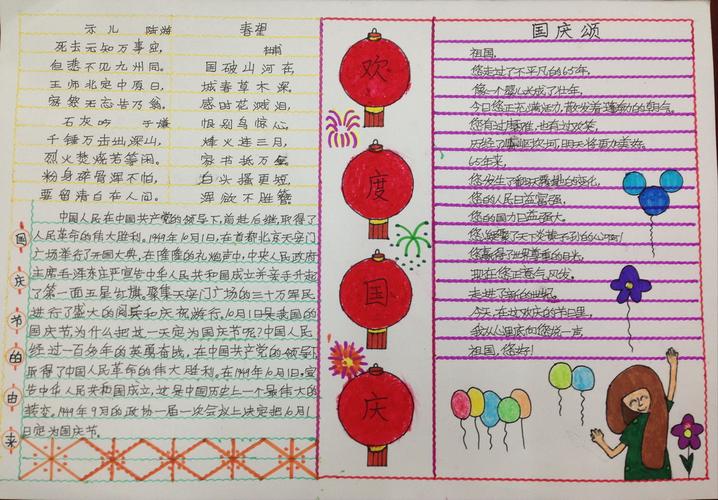 示儿 陆游
死去元知万事空，
但悲不见九州同。
王师北定中原日，
家祭无忘告乃翁。
石灰吟 于谦
千锤万击出深山，
烈火焚烧若等闲。
粉身碎骨浑不怕，
要留清白在人间。
春望
杜甫
国破山河在，
城春草木深。
感时花溅泪，
恨别鸟惊心。
烽火连三月，
家书抵万金。
白头搔更短，
浑欲不胜簪
国庆节的由来
中国人民在中国共产党的领导下，前赴后继，取得了
人民革命的伟大胜利。1949年10月1日，在首都北京天安门
广场举行了开国大典，在隆隆的礼炮声中，中央人民政府
主席毛泽东庄严宣告中华人民共和国成立并亲手升起
了第一面五星红旗。聚集天安门广场的三十万军民
进行了盛大的阅兵和庆祝游行，10月1日是我国的
国庆节为什么把这一天定为国庆节呢？中国人民
经过一百多年的英勇奋战，在中国共产党的领导下
取得了中国人民革命的伟大胜利，在1949年10月1日，宣
告中华人民共和国成立，这是中国历史上一个最伟大的
转变。1949年9月的政协一届一次会议上决定把10月1
日定为国庆节。
欢
度
国
庆
国庆颂
祖国，
您走过了不平凡的65年，
像一个婴儿长成了壮年，
今日您正充满活力，散发着蓬勃的朝气。
您有过磨难，也有过欢笑，
明天将更为美好。
65年来，
您发生了翻天覆地的变化，
您的人民日益富强，
您的国力日益强大。
您凝聚了天下炎黄子孙的心啊！
您赢得了世界尊重的目光。
现在您正意气风发，
走进了新的世纪。
今天，在这欢庆的节日里，
我从心里底向您说一声
祖国，您好！